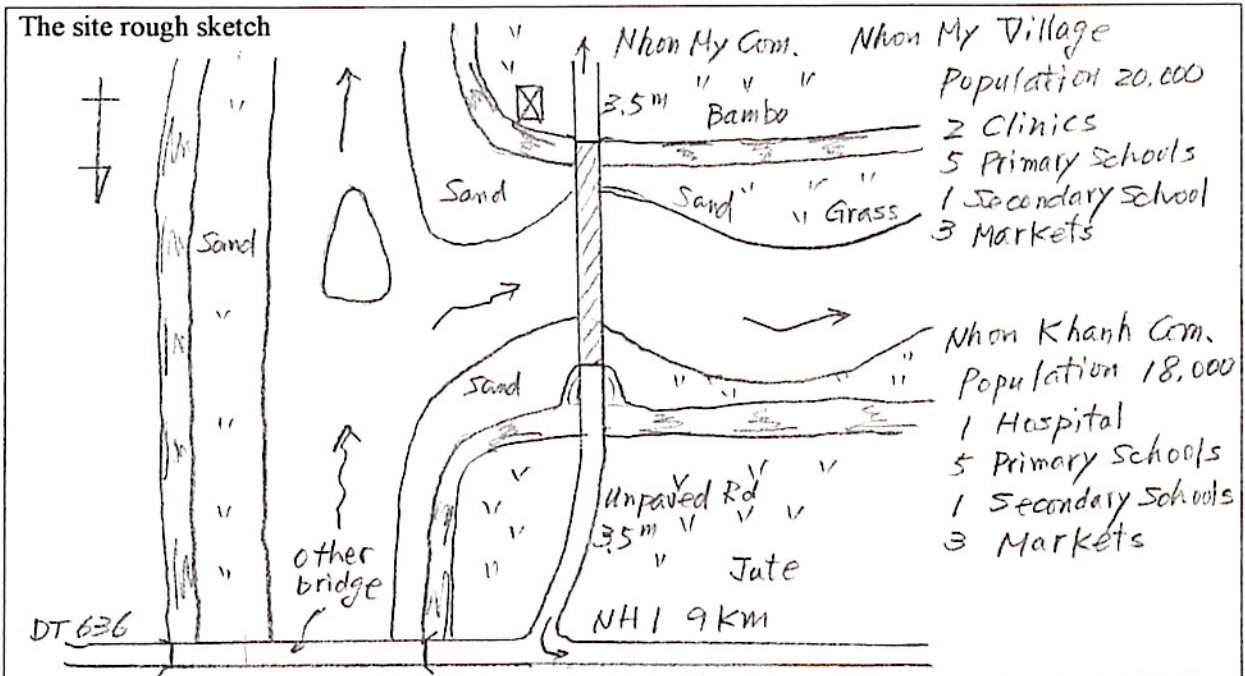 The site rough sketch
Nhon My Com.
Nhon My Village
Population 20,000
2 Clinics
5 Primary Schools
1 Secondary School
3 Markets
3.5 m
Bambo
Sand
Sand
Grass
Sand
Nhon Khanh Com.
Population 18,000
1 Hospital
5 Primary Schools
1 Secondary Schools
3 Markets
Sand
Unpaved Rd
3.5 m
Jute
other
bridge
DT 636
NH1 9 Km